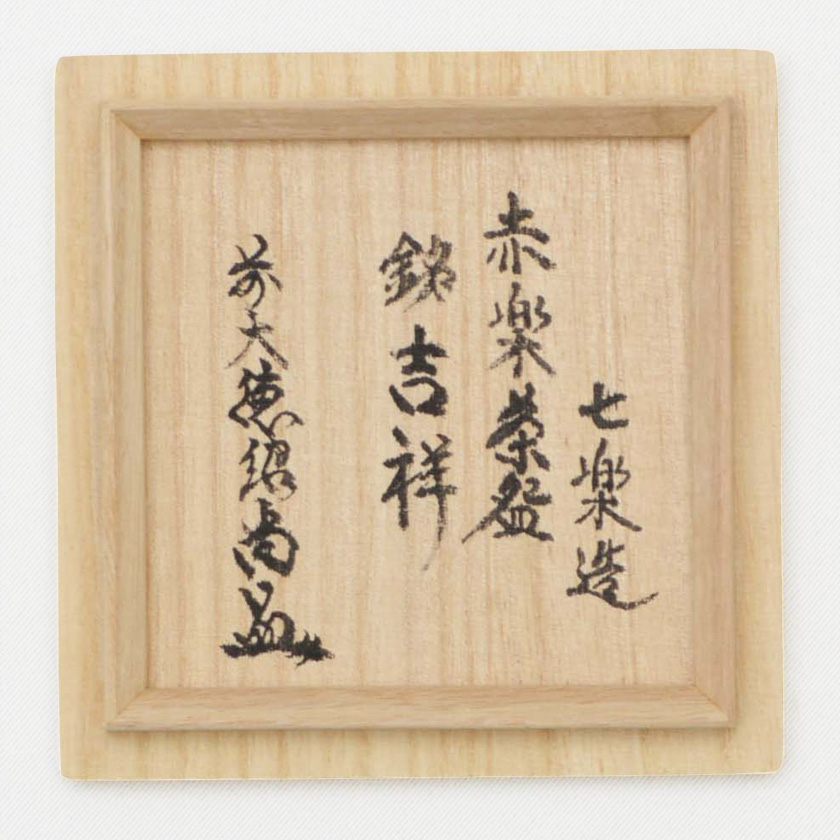 七楽造
赤楽茶盌
銘 吉祥
前大徳紹尚